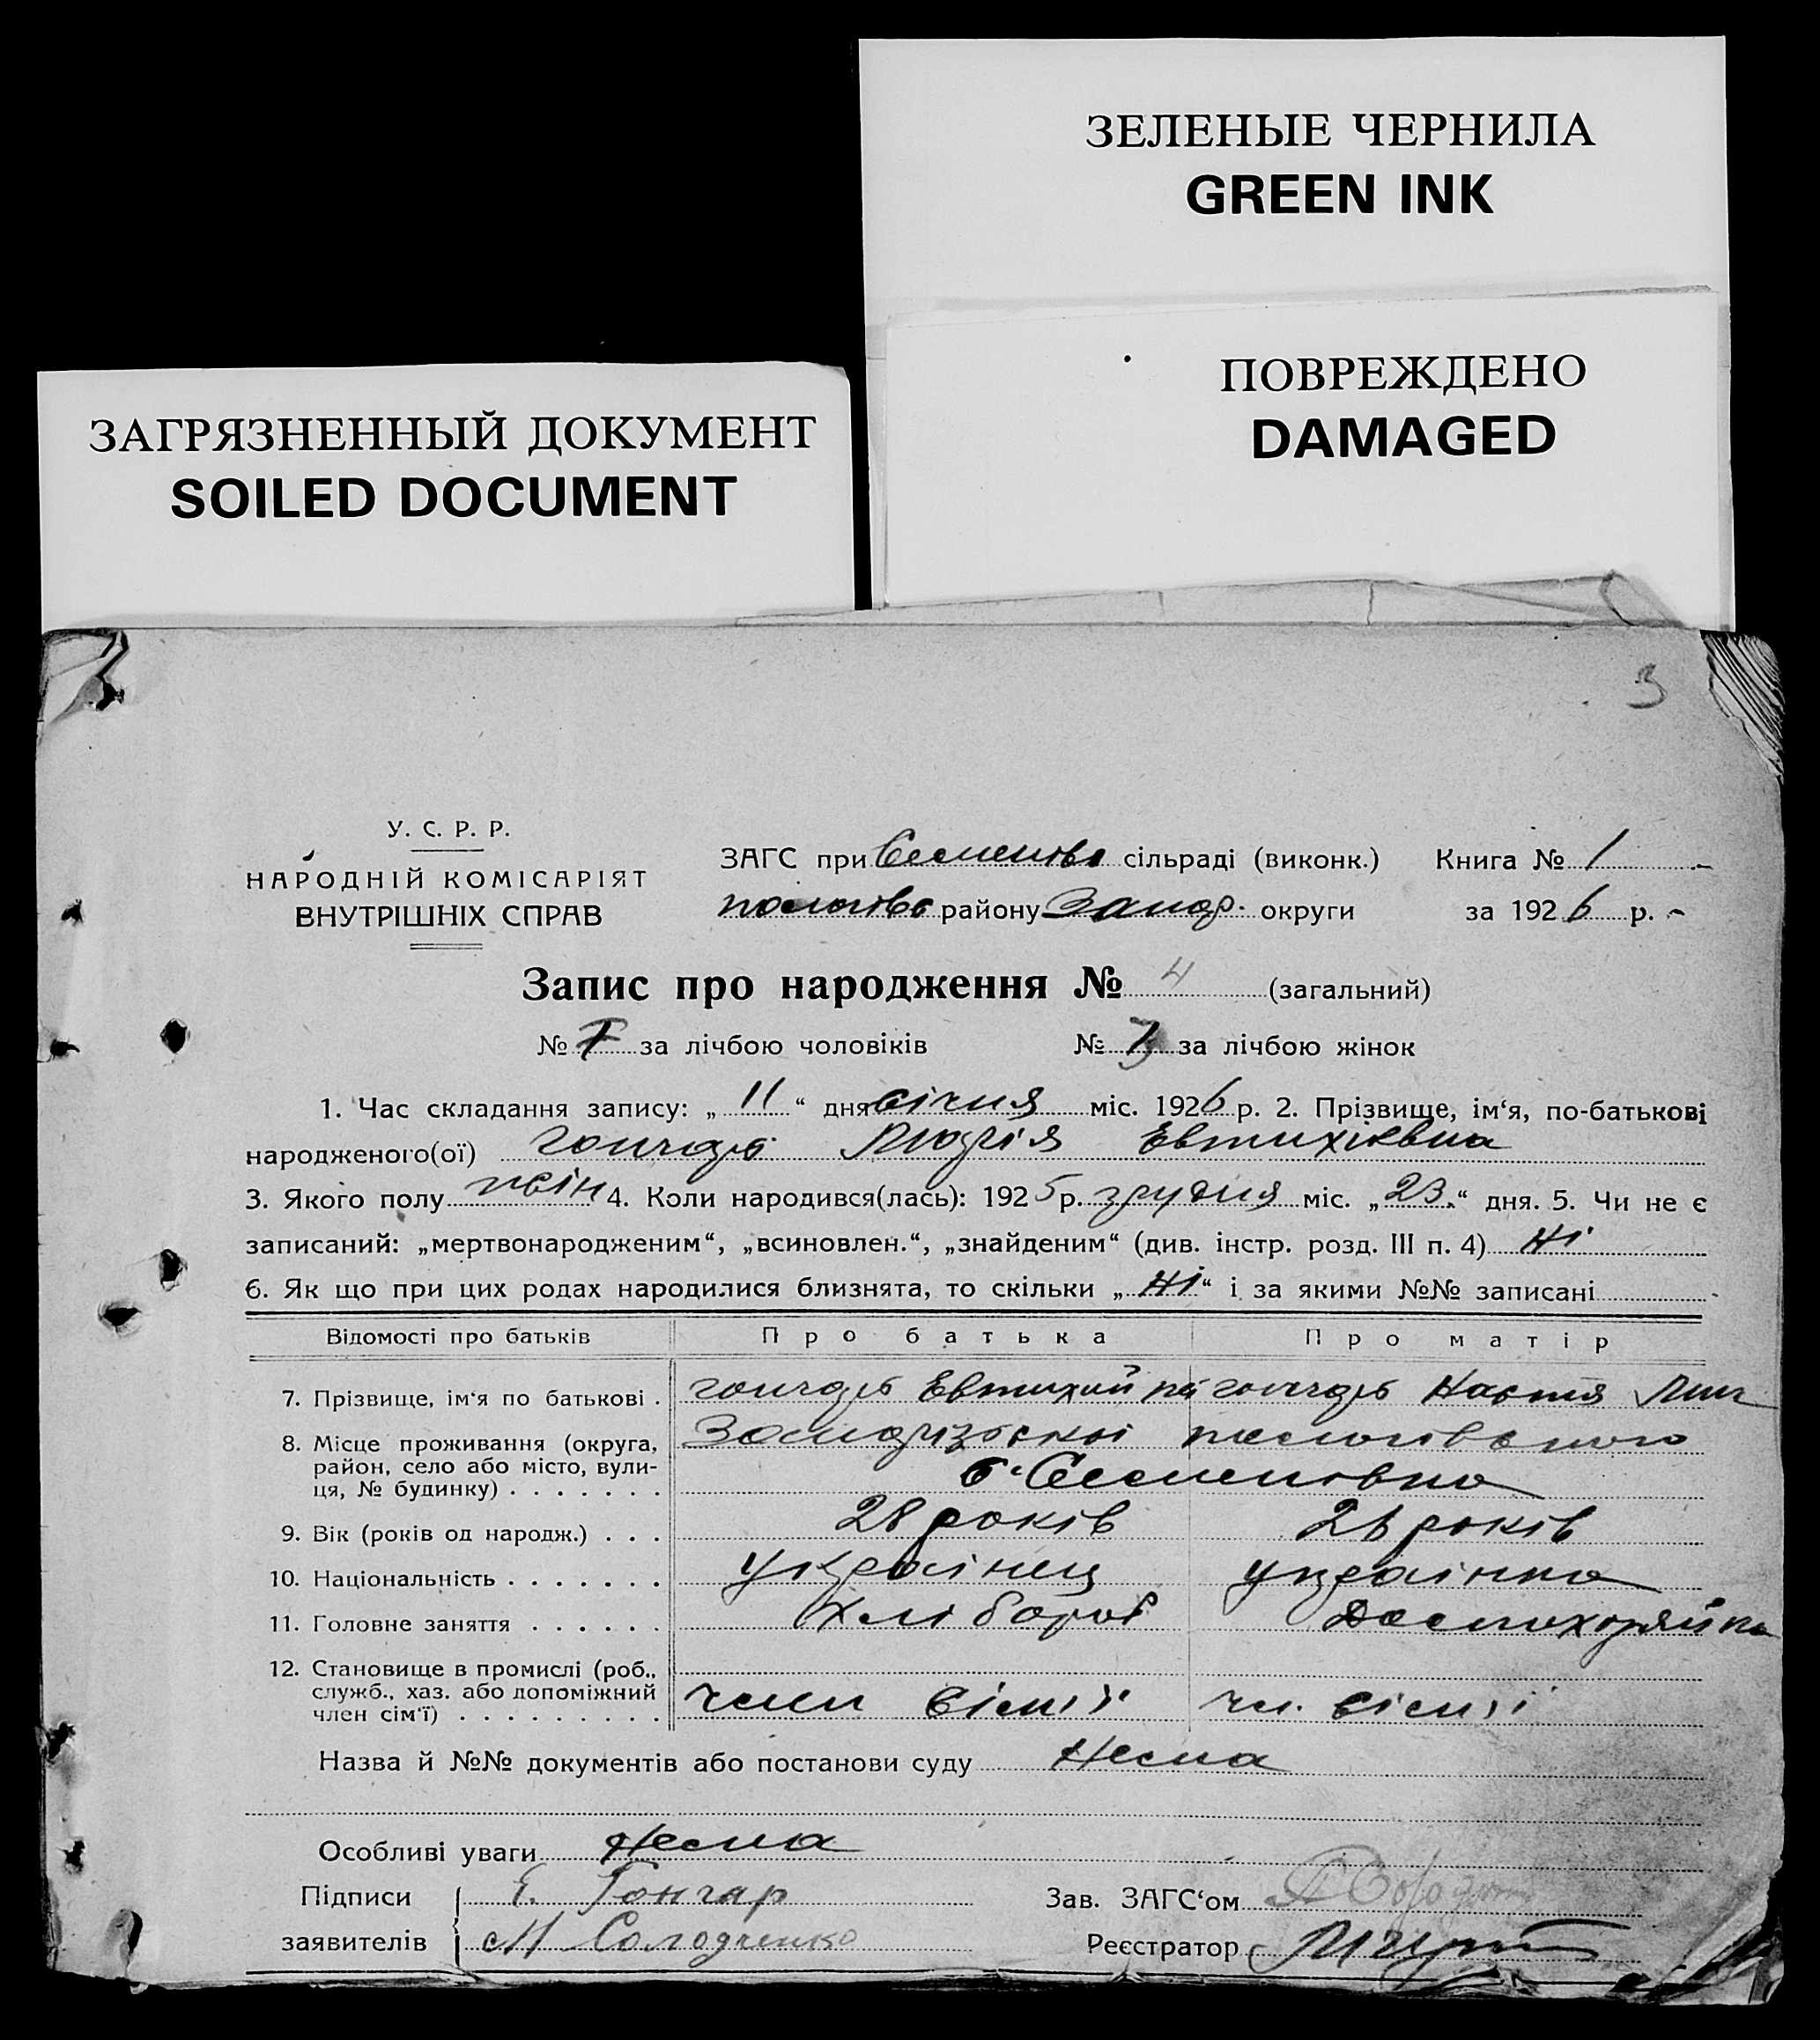 ЗЕЛЕНЫЕ ЧЕРНИЛА
GREEN INK
ПОВРЕЖДЕНО
DAMAGED
ЗАГРЯЗНЕННЫЙ ДОКУМЕНТ
SOILED DOCUMENT
3
У. С. Р. Р.
НАРОДНІЙ КОМІСАРІЯТ
ВНУТРІШНІХ СПРАВ
ЗАГС при Семенівс сільраді (виконк.) Книга № 1
пологівс району Запор. округи за 1926 р.
Запис про народження № 4 (загальний)
№ за лічбою чоловіків № 3 за лічбою жінок
1. Час складання запису: „ 11 “ дня січня міс. 1926 р. 2. Прізвище, ім‘я, по-батькові
народженого(ої) гончарь Марія Евтихіївна
3. Якого полу жін 4. Коли народився(лась): 1925 р. грудня міс. „ 23 “ дня. 5. Чи не є
записаний: „мертвонародженим“, „всиновлен.“, „знайденим“ (див. інстр. розд. III п. 4) Ні
6. Як що при цих родах народилися близнята, то скільки „ Ні “ і за якими №№ записані
Відомості про батьків Про батька Про матір
7. Прізвище, ім‘я по батькові . гончарь Евтихий гончарь Настя
8. Місце проживання (округа, Запорізської пологівського
район, село або місто, вули-
ця, № будинку) . . . . . . . с. Семенівка
9. Вік (років од народж.) . . . 28 років років
10. Національність . . . . . . . українец українка
11. Головне заняття . . . . . . хлібороб Домохозяйка
12. Становище в промислі (роб.,
служб., хаз. або допоміжний
член сім‘ї) . . . . . . . . . член сім'ї чл. сім'ї
Назва й №№ документів або постанови суду Нема
Особливі уваги Нема
Підписи Є. Гончар Зав. ЗАГС‘ом
заявителів М Солодченко Реєстратор